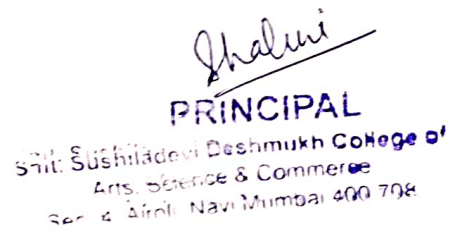 Shalini
PRINCIPAL
Smt. Sushiladevi Deshmukh College of
Arts, Science & Commerce
Sec. 4, Airoli, Navi Mumbai 400 708